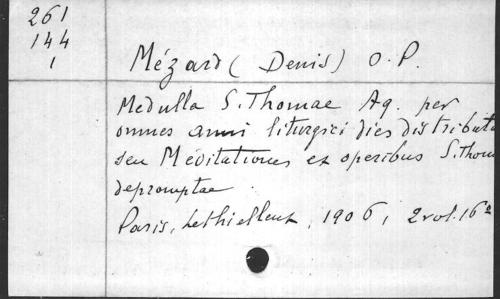 261
144
1
Mézard (Denis) O.P.
Medulla S. Thomae Aq. per
omnes anni liturgici dies distributa
seu Meditationes ex operibus S. Thom
depromptae
Paris, Lethielleux, 1906, 2 vol. 16°